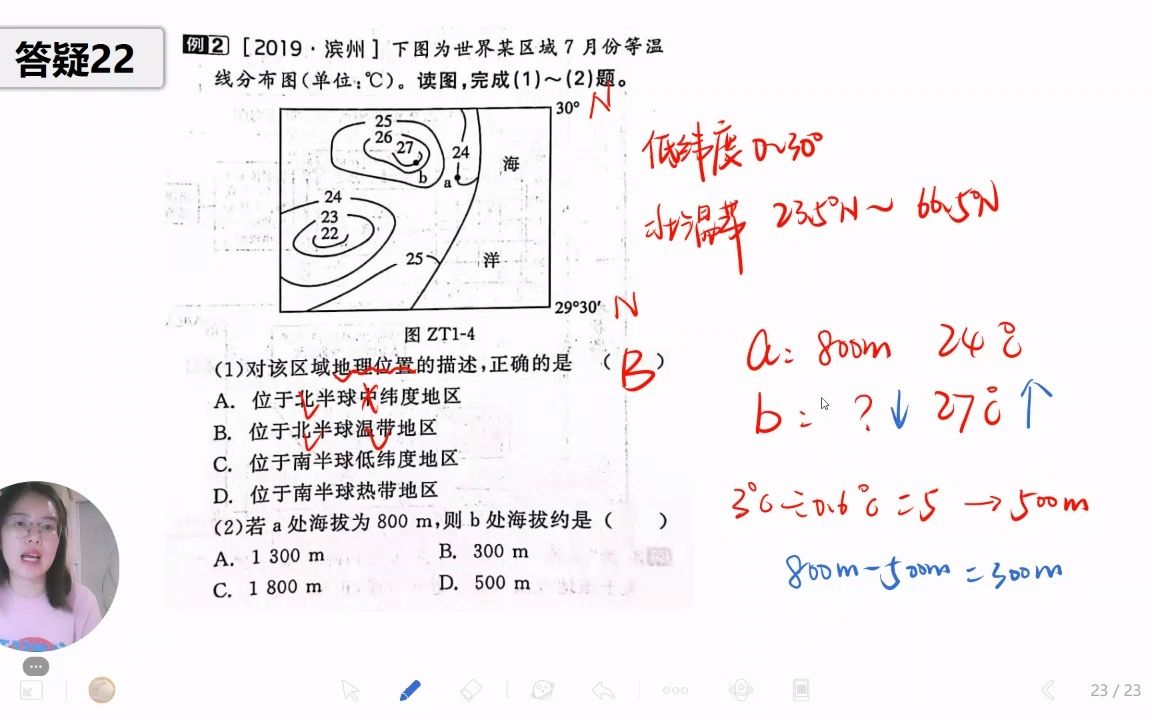 答疑22
例2 [2019·滨州] 下图为世界某区域7月份等温
线分布图(单位:℃)。读图,完成(1)~(2)题。
30° N
25
26
27
24
b
a
海
24
23
22
25
洋
29°30′ N
图 ZT1-4
(1)对该区域地理位置的描述,正确的是 ( B )
A. 位于北半球中纬度地区
B. 位于北半球温带地区
C. 位于南半球低纬度地区
D. 位于南半球热带地区
(2)若 a 处海拔为 800 m,则 b 处海拔约是 ( )
A. 1 300 m B. 300 m
C. 1 800 m D. 500 m
低纬度 0~30°
北温带 23.5°N ~ 66.5°N
a: 800m 24℃
b: ? ↓ 27℃ ↑
3℃÷0.6℃=5 → 500m
800m-500m=300m
23 / 23